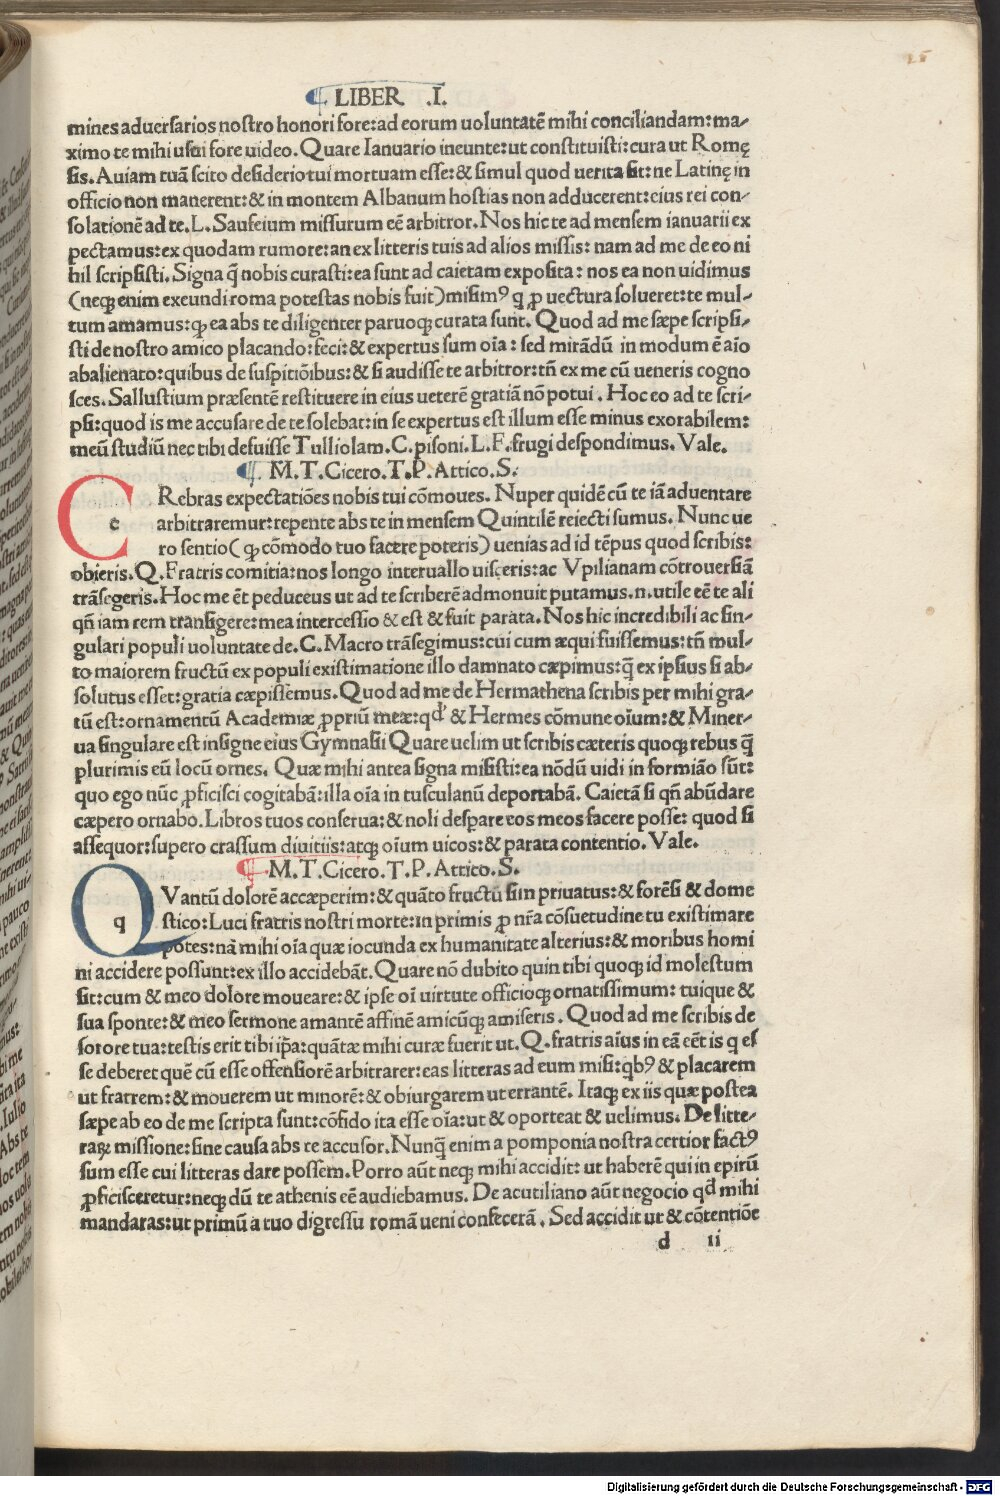 25
LIBER .I.
mines aduersarios nostro honori fore: ad eorum uoluntatē mihi conciliandam: ma⸗
ximo te mihi usui fore uideo. Quare Ianuario ineunte: ut constituisti: cura ut Romę
sis. Auiam tuā scito desiderio tui mortuam esse: & simul quod uerita sit: ne Latinę in
officio non manerent: & in montem Albanum hostias non adducerent: eius rei con⸗
solationē ad te. L. Saufeium missurum eē arbitror. Nos hic te ad mensem ianuarii ex
pectamus: ex quodam rumore: an ex litteris tuis ad alios missis: nam ad me de eo ni
hil scripsisti. Signa q̄ nobis curasti: ea sunt ad caietam exposita: nos ea non uidimus
(neqꝫ enim exeundi roma potestas nobis fuit) misimꝰ q ꝓ uectura solueret: te mul⸗
tum amamus: ꝙ ea abs te diligenter paruoqꝫ curata sunt. Quod ad me sæpe scripsi⸗
sti de nostro amico placando: feci: & expertus sum oīa: sed mirādū in modum ē aīo
abalienato: quibus de suspitiōibus: & si audisse te arbitror: tn̄ ex me cū ueneris cogno
sces. Sallustium præsentē restituere in eius ueterē gratiā nō potui. Hoc eo ad te scri⸗
psi: quod is me accusare de te solebat: in se expertus est illum esse minus exorabilem:
meū studiū nec tibi defuisse Tulliolam. C. pisoni. L. F. frugi despondimus. Vale.
M. T. Cicero. T. P. Attico. S.
C e Rebras expectatiōes nobis tui cōmoues. Nuper quidē cū te iā aduentare
arbitraremur: repente abs te in mensem Quintilē reiecti sumus. Nunc ue
ro sentio (ꝙ cōmodo tuo facere poteris) uenias ad id tēpus quod scribis:
obieris. Q. Fratris comitia: nos longo interuallo uisceris: ac Vpilianam cōtrouersiā
trāsegeris. Hoc me ēt peduceus ut ad te scriberē admonuit putamus. n. utile eē te ali
qn̄ iam rem transigere: mea intercessio & est & fuit parata. Nos hic incredibili ac sin⸗
gulari populi uoluntate de. C. Macro trāsegimus: cui cum æqui fuissemus: tn̄ mul⸗
to maiorem fructū ex populi existimatione illo damnato cæpimus: q̄ ex ipsius si ab⸗
solutus esset: gratia cæpissemus. Quod ad me de Hermathena scribis per mihi gra⸗
tū est: ornamentū Academiæ ꝓpriū meæ: qd' & Hermes cōmune oīum: & Miner⸗
ua singulare est insigne eius Gymnasii Quare uelim ut scribis cæteris quoqꝫ rebus q̄
plurimis eū locū ornes. Quæ mihi antea signa misisti: ea nōdū uidi in formiāo sūt:
quo ego nūc ꝓficisci cogitabā: illa oīa in tusculanū deportabā. Caietā si qn̄ abūdare
cæpero ornabo. Libros tuos conserua: & noli desꝑare eos meos facere posse: quod si
assequor: supero crassum diuitiis: atqꝫ oīum uicos: & parata contentio. Vale.
M. T. Cicero. T. P. Attico. S.
Q q Vantū dolorē accæperim: & quāto fructū sim priuatus: & forēsi & dome
stico: Luci fratris nostri morte: in primis ꝓ nr̄a cōsuetudine tu existimare
potes: nā mihi oīa quæ iocunda ex humanitate alterius: & moribus homi
ni accidere possunt: ex illo accidebāt. Quare nō dubito quin tibi quoqꝫ id molestum
sit: cum & meo dolore moueare: & ipse oī uirtute officioqꝫ ornatissimum: tuique &
sua sponte: & meo sermone amantē affinē amicūqꝫ amiseris. Quod ad me scribis de
sorore tua: testis erit tibi ip̄a: quātæ mihi curæ fuerit ut. Q. fratris aīus in eā eēt is q es
se deberet quē cū esse offensiorē arbitrarer: eas litteras ad eum misi: qbꝰ & placarem
ut fratrem: & mouerem ut minorē: & obiurgarem ut errantē. Itaqꝫ ex iis quæ postea
sæpe ab eo de me scripta sunt: cōfido ita esse oīa: ut & oporteat & uelimus. De litte⸗
raꝝ missione: sine causa abs te accusor. Nunq̄ enim a pomponia nostra certior factꝰ
sum esse cui litteras dare possem. Porro aūt neqꝫ mihi accidit: ut haberē qui in epirū
ꝓficisceretur: neqꝫ dū te athenis eē audiebamus. De acutiliano aūt negocio qd mihi
mandaras: ut primū a tuo digressu romā ueni confecerā. Sed accidit ut & cōtentiōe
d ii
Digitalisierung gefördert durch die Deutsche Forschungsgemeinschaft - DFG